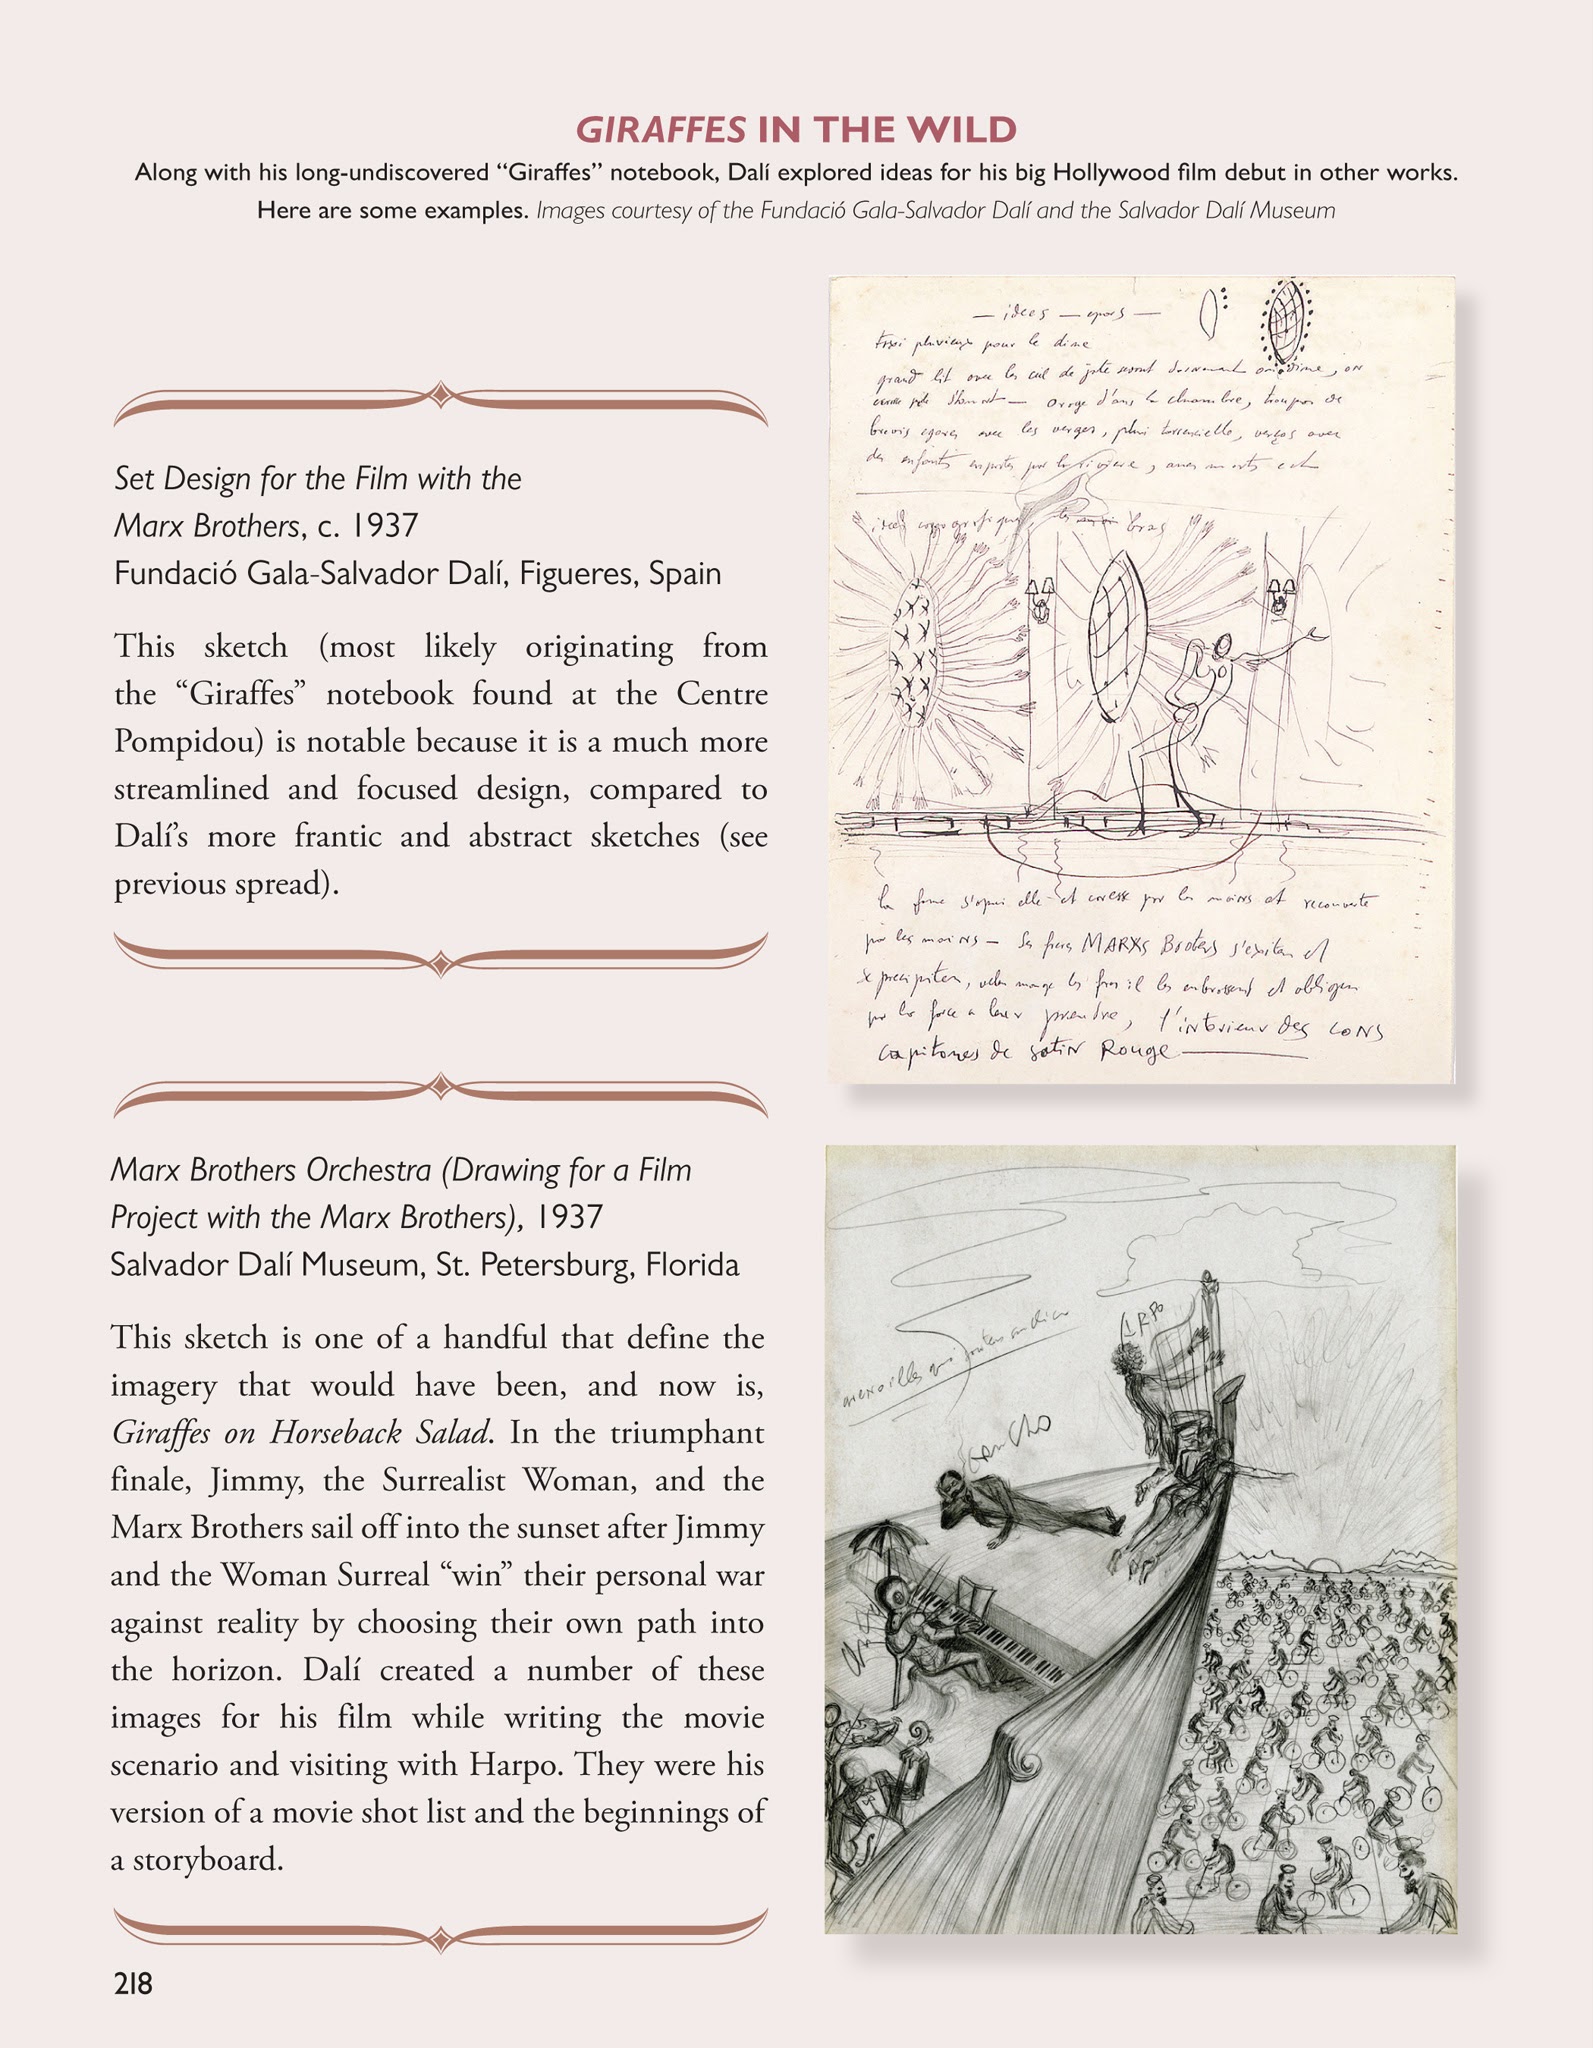 GIRAFFES IN THE WILD
Along with his long-undiscovered “Giraffes” notebook, Dalí explored ideas for his big Hollywood film debut in other works.
Here are some examples. Images courtesy of the Fundació Gala-Salvador Dalí and the Salvador Dalí Museum
Set Design for the Film with the
Marx Brothers, c. 1937
Fundació Gala-Salvador Dalí, Figueres, Spain
This sketch (most likely originating from
the “Giraffes” notebook found at the Centre
Pompidou) is notable because it is a much more
streamlined and focused design, compared to
Dalí’s more frantic and abstract sketches (see
previous spread).
— idees —
pluvieux pour le
grand lit avec
dans la chambre,
avec les
des enfants
bras
la
par les moins — MARXS Broters
par la force a leur prendre, l’interieur des cons
capitones de satin Rouge
Marx Brothers Orchestra (Drawing for a Film
Project with the Marx Brothers), 1937
Salvador Dalí Museum, St. Petersburg, Florida
This sketch is one of a handful that define the
imagery that would have been, and now is,
Giraffes on Horseback Salad. In the triumphant
finale, Jimmy, the Surrealist Woman, and the
Marx Brothers sail off into the sunset after Jimmy
and the Woman Surreal “win” their personal war
against reality by choosing their own path into
the horizon. Dalí created a number of these
images for his film while writing the movie
scenario and visiting with Harpo. They were his
version of a movie shot list and the beginnings of
a storyboard.
218